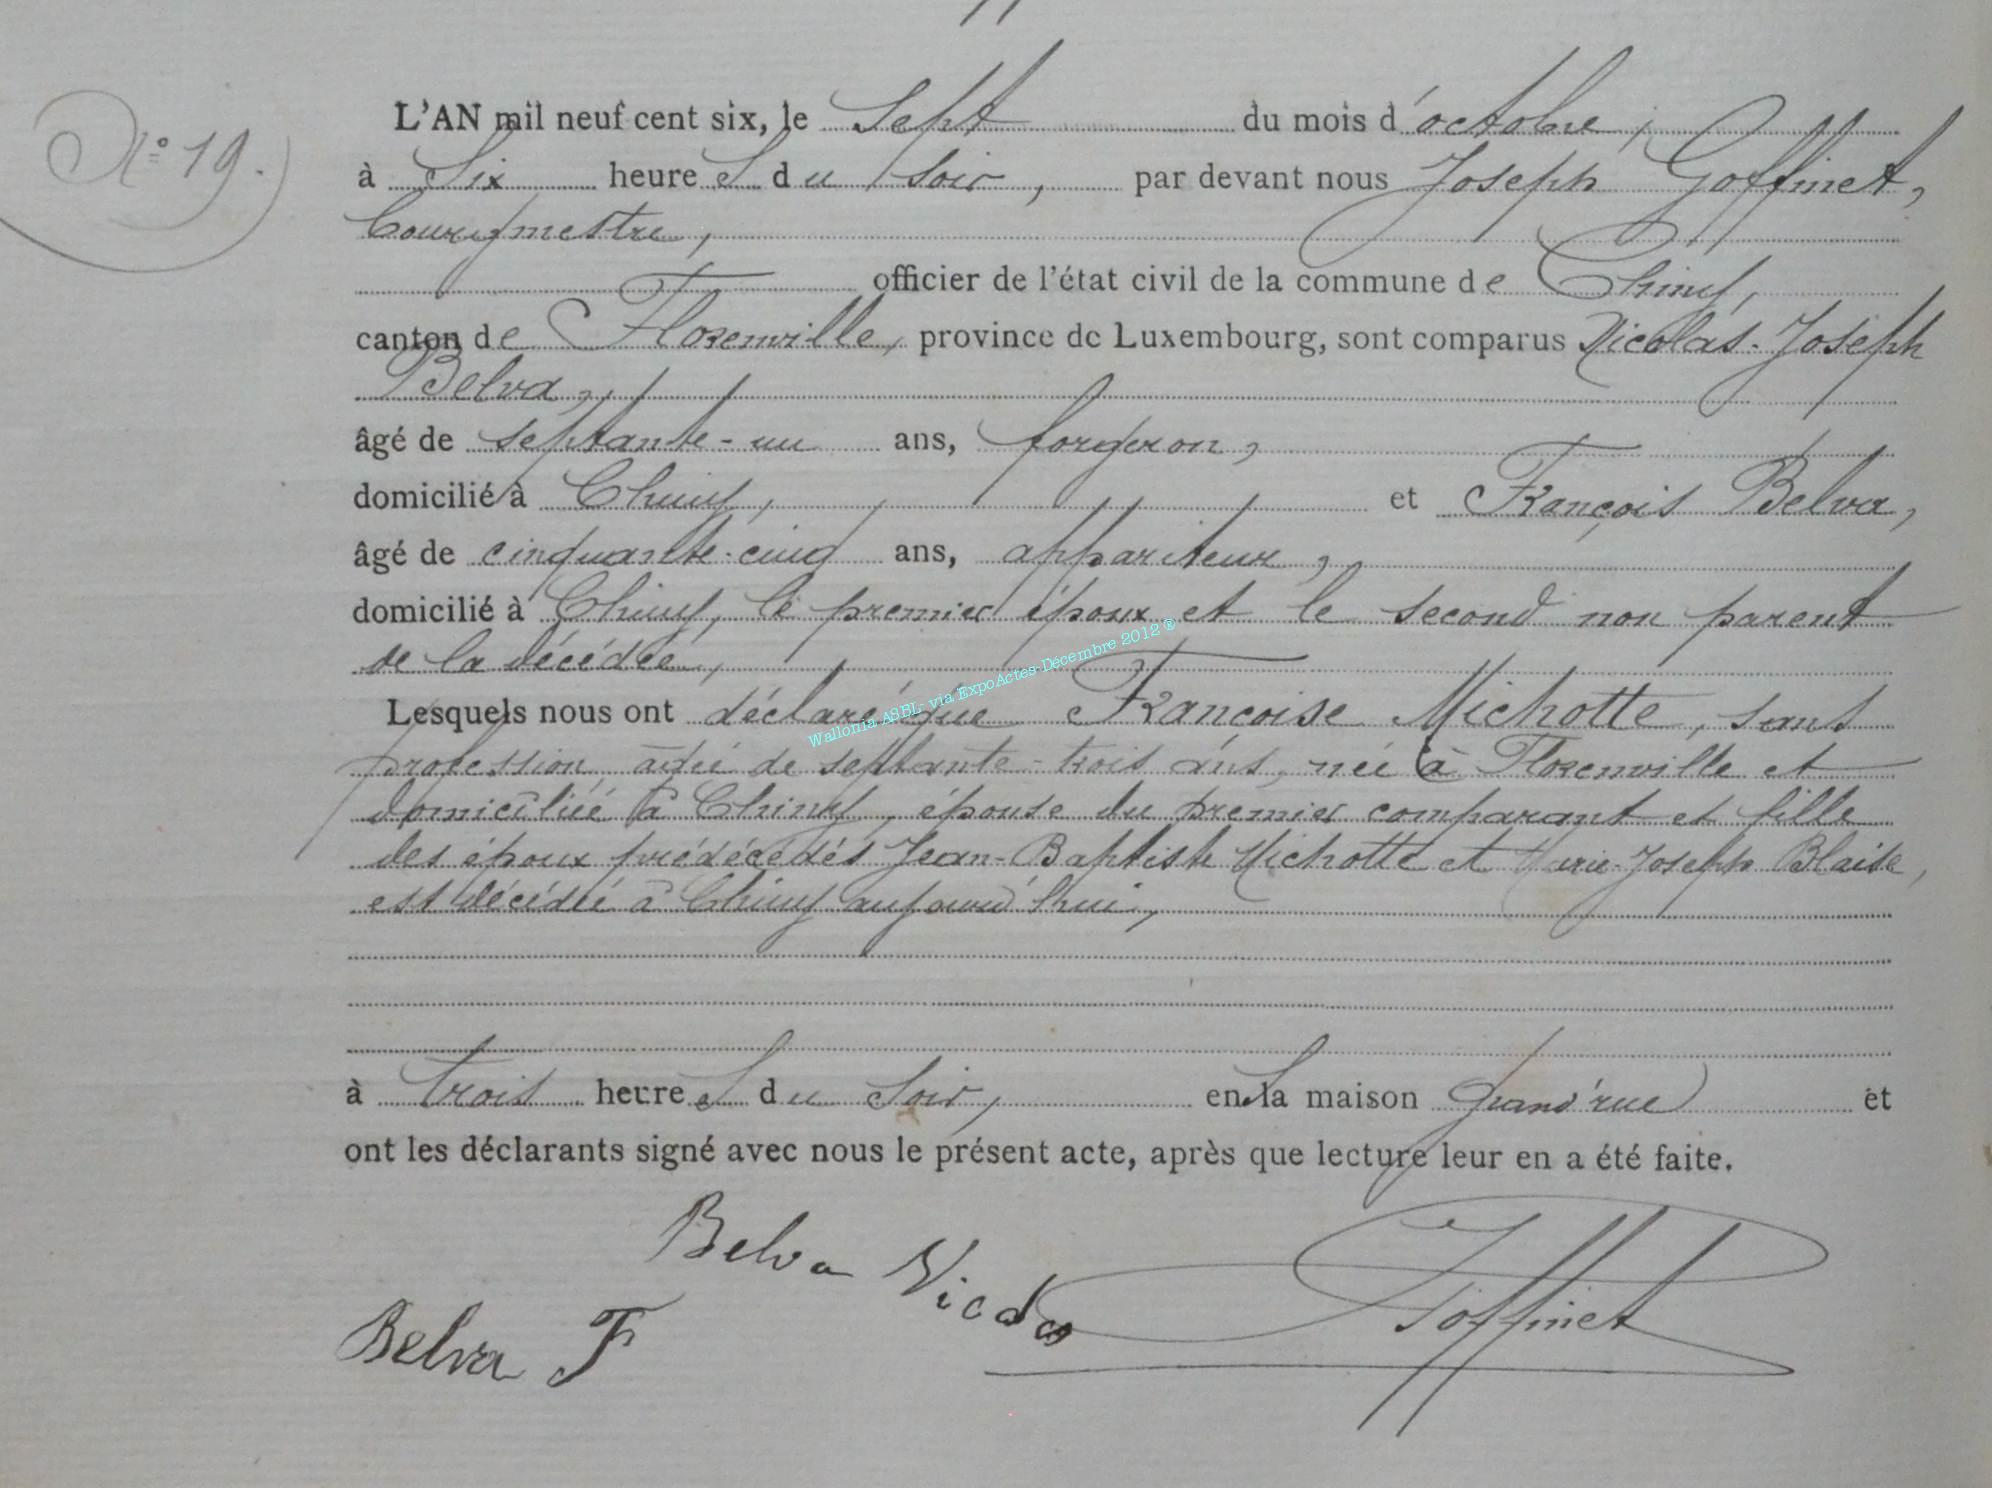 N° 19.
L'AN mil neuf cent six, le Sept du mois d'octobre,
à Six heures du soir, par devant nous Joseph Goffinet,
bourgmestre,
officier de l'état civil de la commune de Chiny,
canton de Florenville, province de Luxembourg, sont comparus Nicolas-Joseph
Belva,
âgé de septante-un ans, forgeron,
domicilié à Chiny, et François Belva,
âgé de cinquante-cinq ans, appariteur,
domicilié à Chiny, le premier époux et le second non parent
de la décédée,
Wallonia ASBL- via ExpoActes-Décembre 2012 ®
Lesquels nous ont déclaré que Françoise Michotte, sans
profession, âgée de septante-trois ans, née à Florenville et
domiciliée à Chiny, épouse du premier comparant et fille
des époux prédécédés Jean-Baptiste Michotte et Marie-Joseph Blaise,
est décédée à Chiny aujourd'hui,
à trois heures du soir, en sa maison Grand'rue et
ont les déclarants signé avec nous le présent acte, après que lecture leur en a été faite.
Belva Nicolas
Goffinet
Belva F